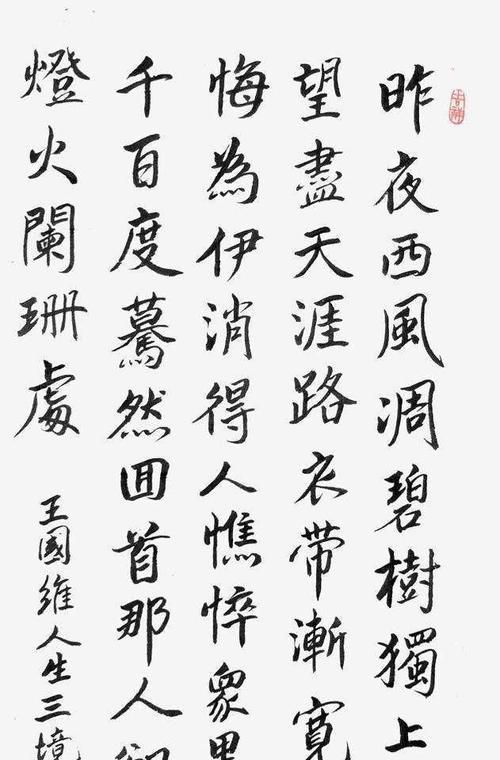 昨夜西風凋碧樹獨上
望盡天涯路衣帶漸寬
悔為伊消得人憔悴衆
千百度驀然囬首那人
燈火闌珊處
王國維人生三境